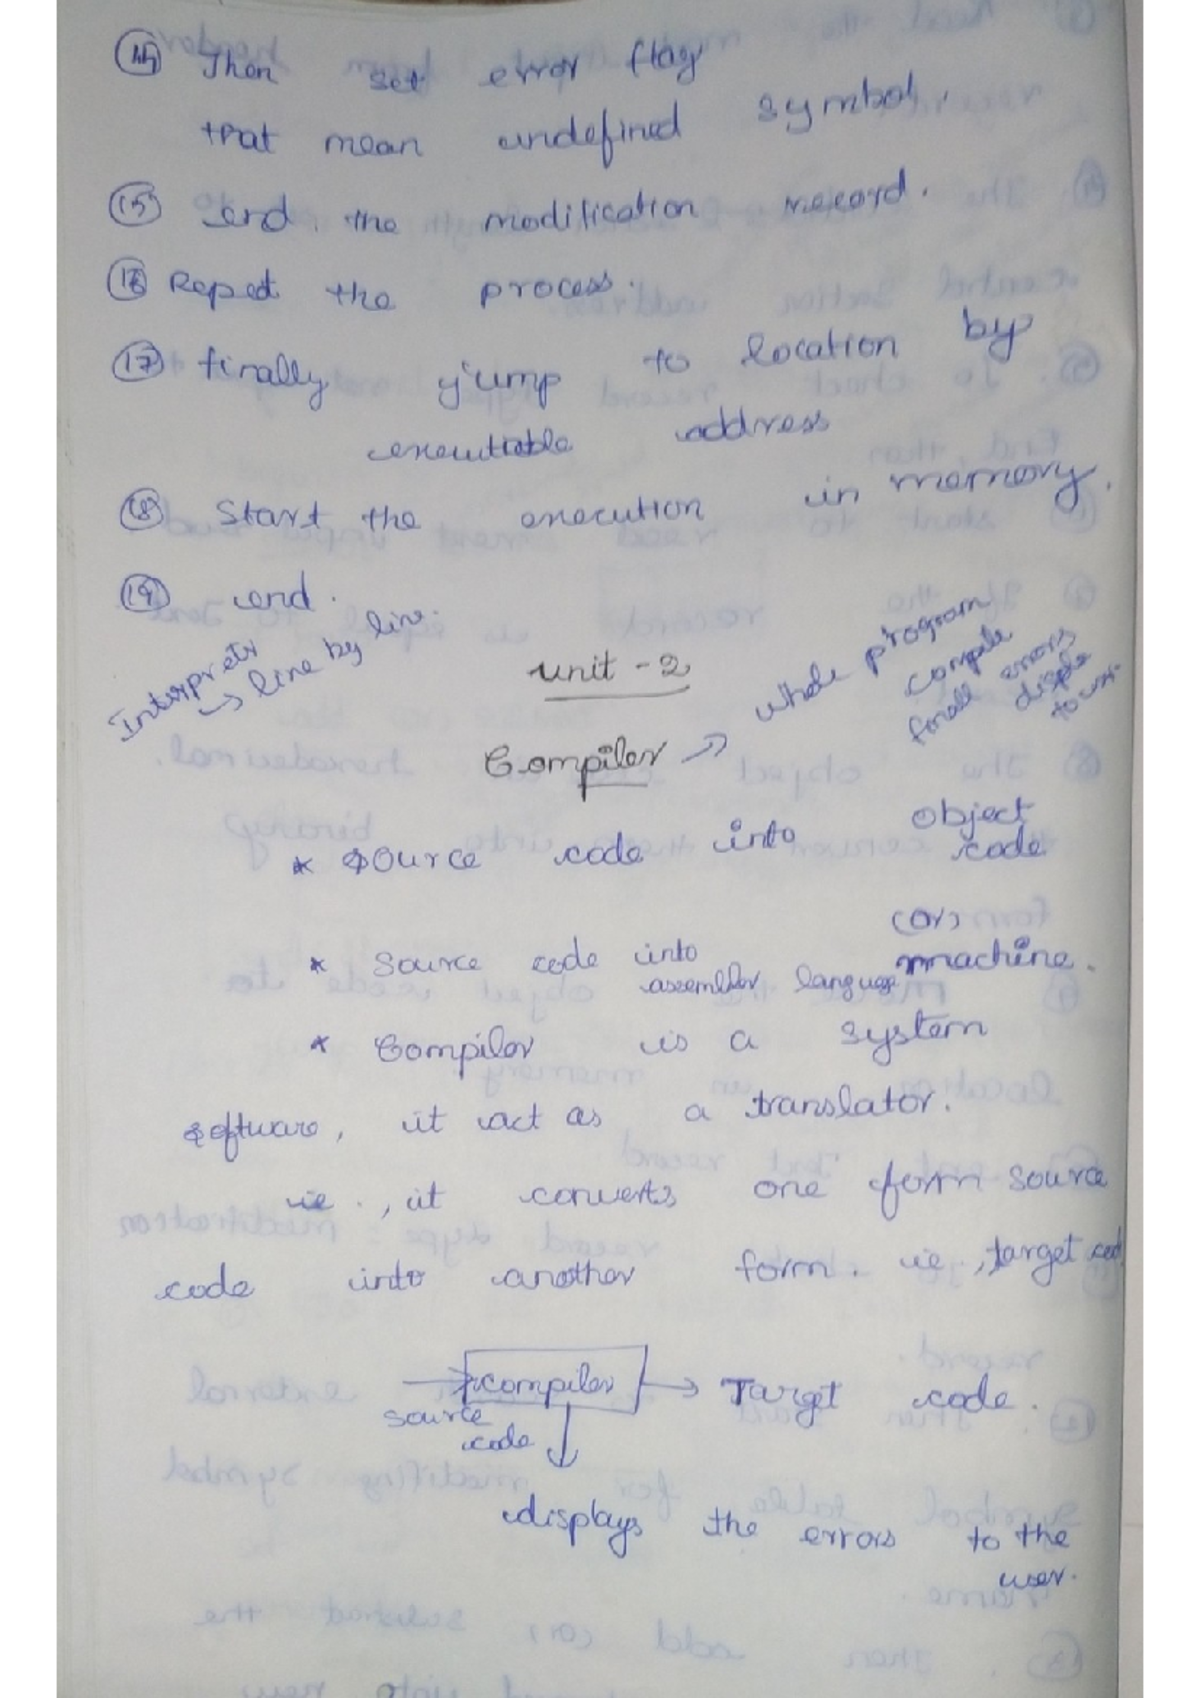 (14) Then set error flag
that mean undefined symbol.
(15) end the modification record.
(16) Repeat the process.
(17) finally jump to location by
executable address
(18) Start the execution in memory.
(19) end.
Interpretr
→ line by line.
Unit - 2
Compiler →
whole program
compile
finall errors
displa
to user.
* source code into object
code
(or)
* source code into machine.
assembler language
* Compiler is a system
software, it act as a translator.
ie., it converts one form source
code into another form. ie., target code
→ compiler → Target code.
source
code
displays the errors to the
user.